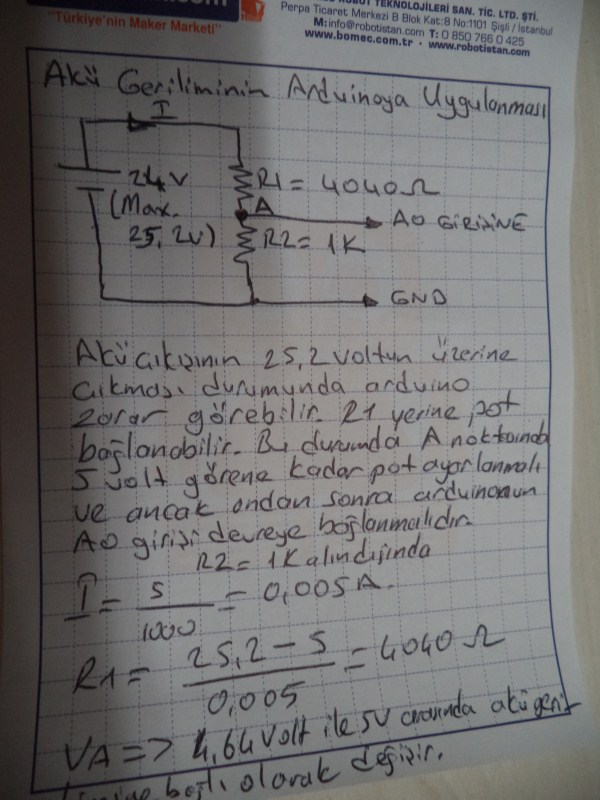 ROBOT TEKNOLOJİLERİ SAN. TİC. LTD. ŞTİ.
Perpa Ticaret Merkezi B Blok Kat:8 No:1101 Şişli / İstanbul
"Türkiye'nin Maker Marketi"
M:info@robotistan.com T: 0 850 766 0 425
www.bomec.com.tr • www.robotistan.com
Akü Geriliminin Arduinoya Uygulanması
I
24V
(Max.
25,2V)
R1 = 4040Ω
A
A0 GİRİŞİNE
R2 = 1K
GND
Akü çıkışının 25,2 voltun üzerine
çıkması durumunda arduino
zarar görebilir. R1 yerine pot
bağlanabilir. Bu durumda A noktasında
5 volt görene kadar pot ayarlanmalı
ve ancak ondan sonra arduinonun
A0 girişi devreye bağlanmalıdır.
R2 = 1K alındığında
I = 5 / 1000 = 0,005A.
R1 = 25,2 - 5 / 0,005 = 4040 Ω
VA => 4,64 Volt ile 5V arasında akü geri-
limine bağlı olarak değişir.